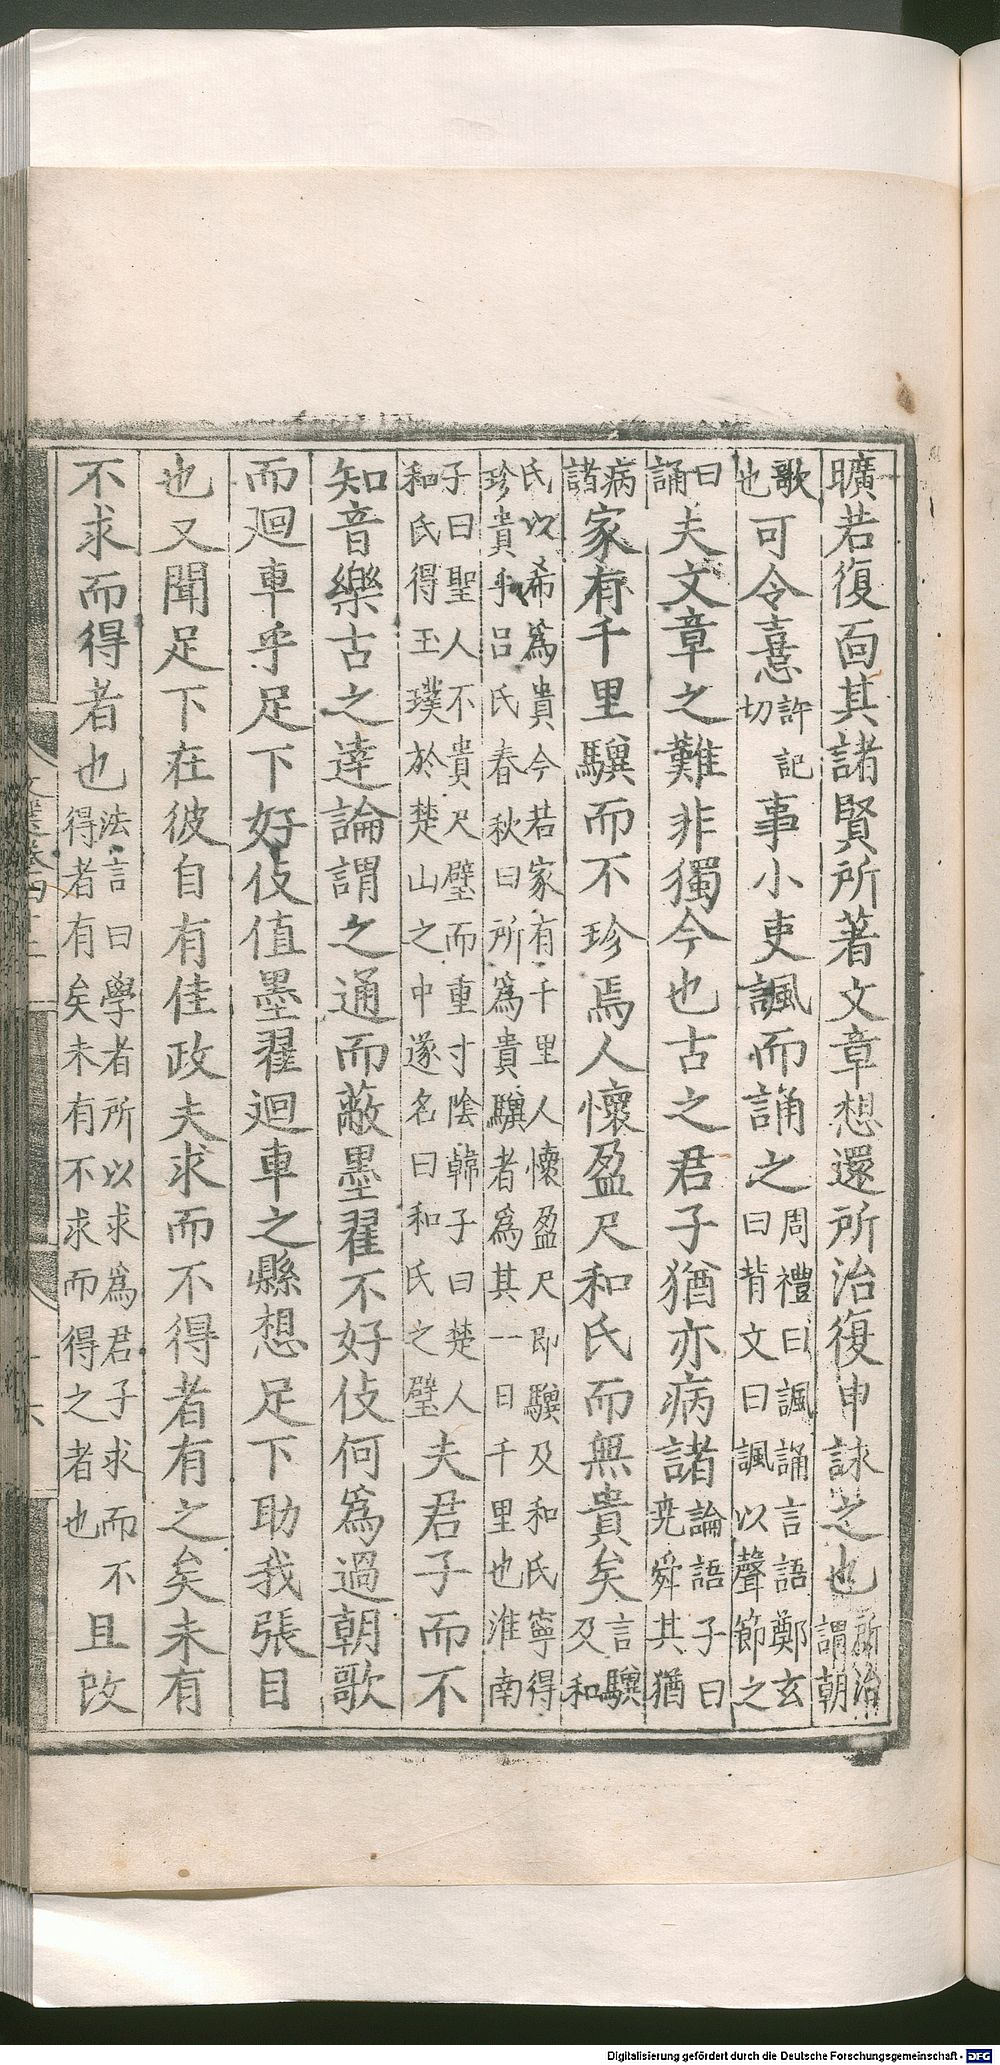 曠若復面其諸賢所著文章想還所治復申詠之也所治謂朝
歌也可令憙許記切事小吏諷而誦之周禮曰諷誦言語鄭玄曰背文曰諷以聲節之
曰誦夫文章之難非獨今也古之君子猶亦病諸論語子曰堯舜其猶
病諸家有千里驥而不珍焉人懷盈尺和氏而無貴矣言驥及和
氏以希爲貴今若家有千里人懷盈尺即驥及和氏寧得珍貴乎呂氏春秋曰所爲貴驥者爲其一日千里也淮南
子曰聖人不貴尺璧而重寸陰韓子曰楚人和氏得玉璞於楚山之中遂名曰和氏之璧夫君子而不
知音樂古之達論謂之通而蔽墨翟不好伎何爲過朝歌
而廻車乎足下好伎值墨翟迴車之縣想足下助我張目
也又聞足下在彼自有佳政夫求而不得者有之矣未有
不求而得者也法言曰學者所以求爲君子求而不得者有矣未有不求而得之者也且改
Digitalisierung gefördert durch die Deutsche Forschungsgemeinschaft - DFG